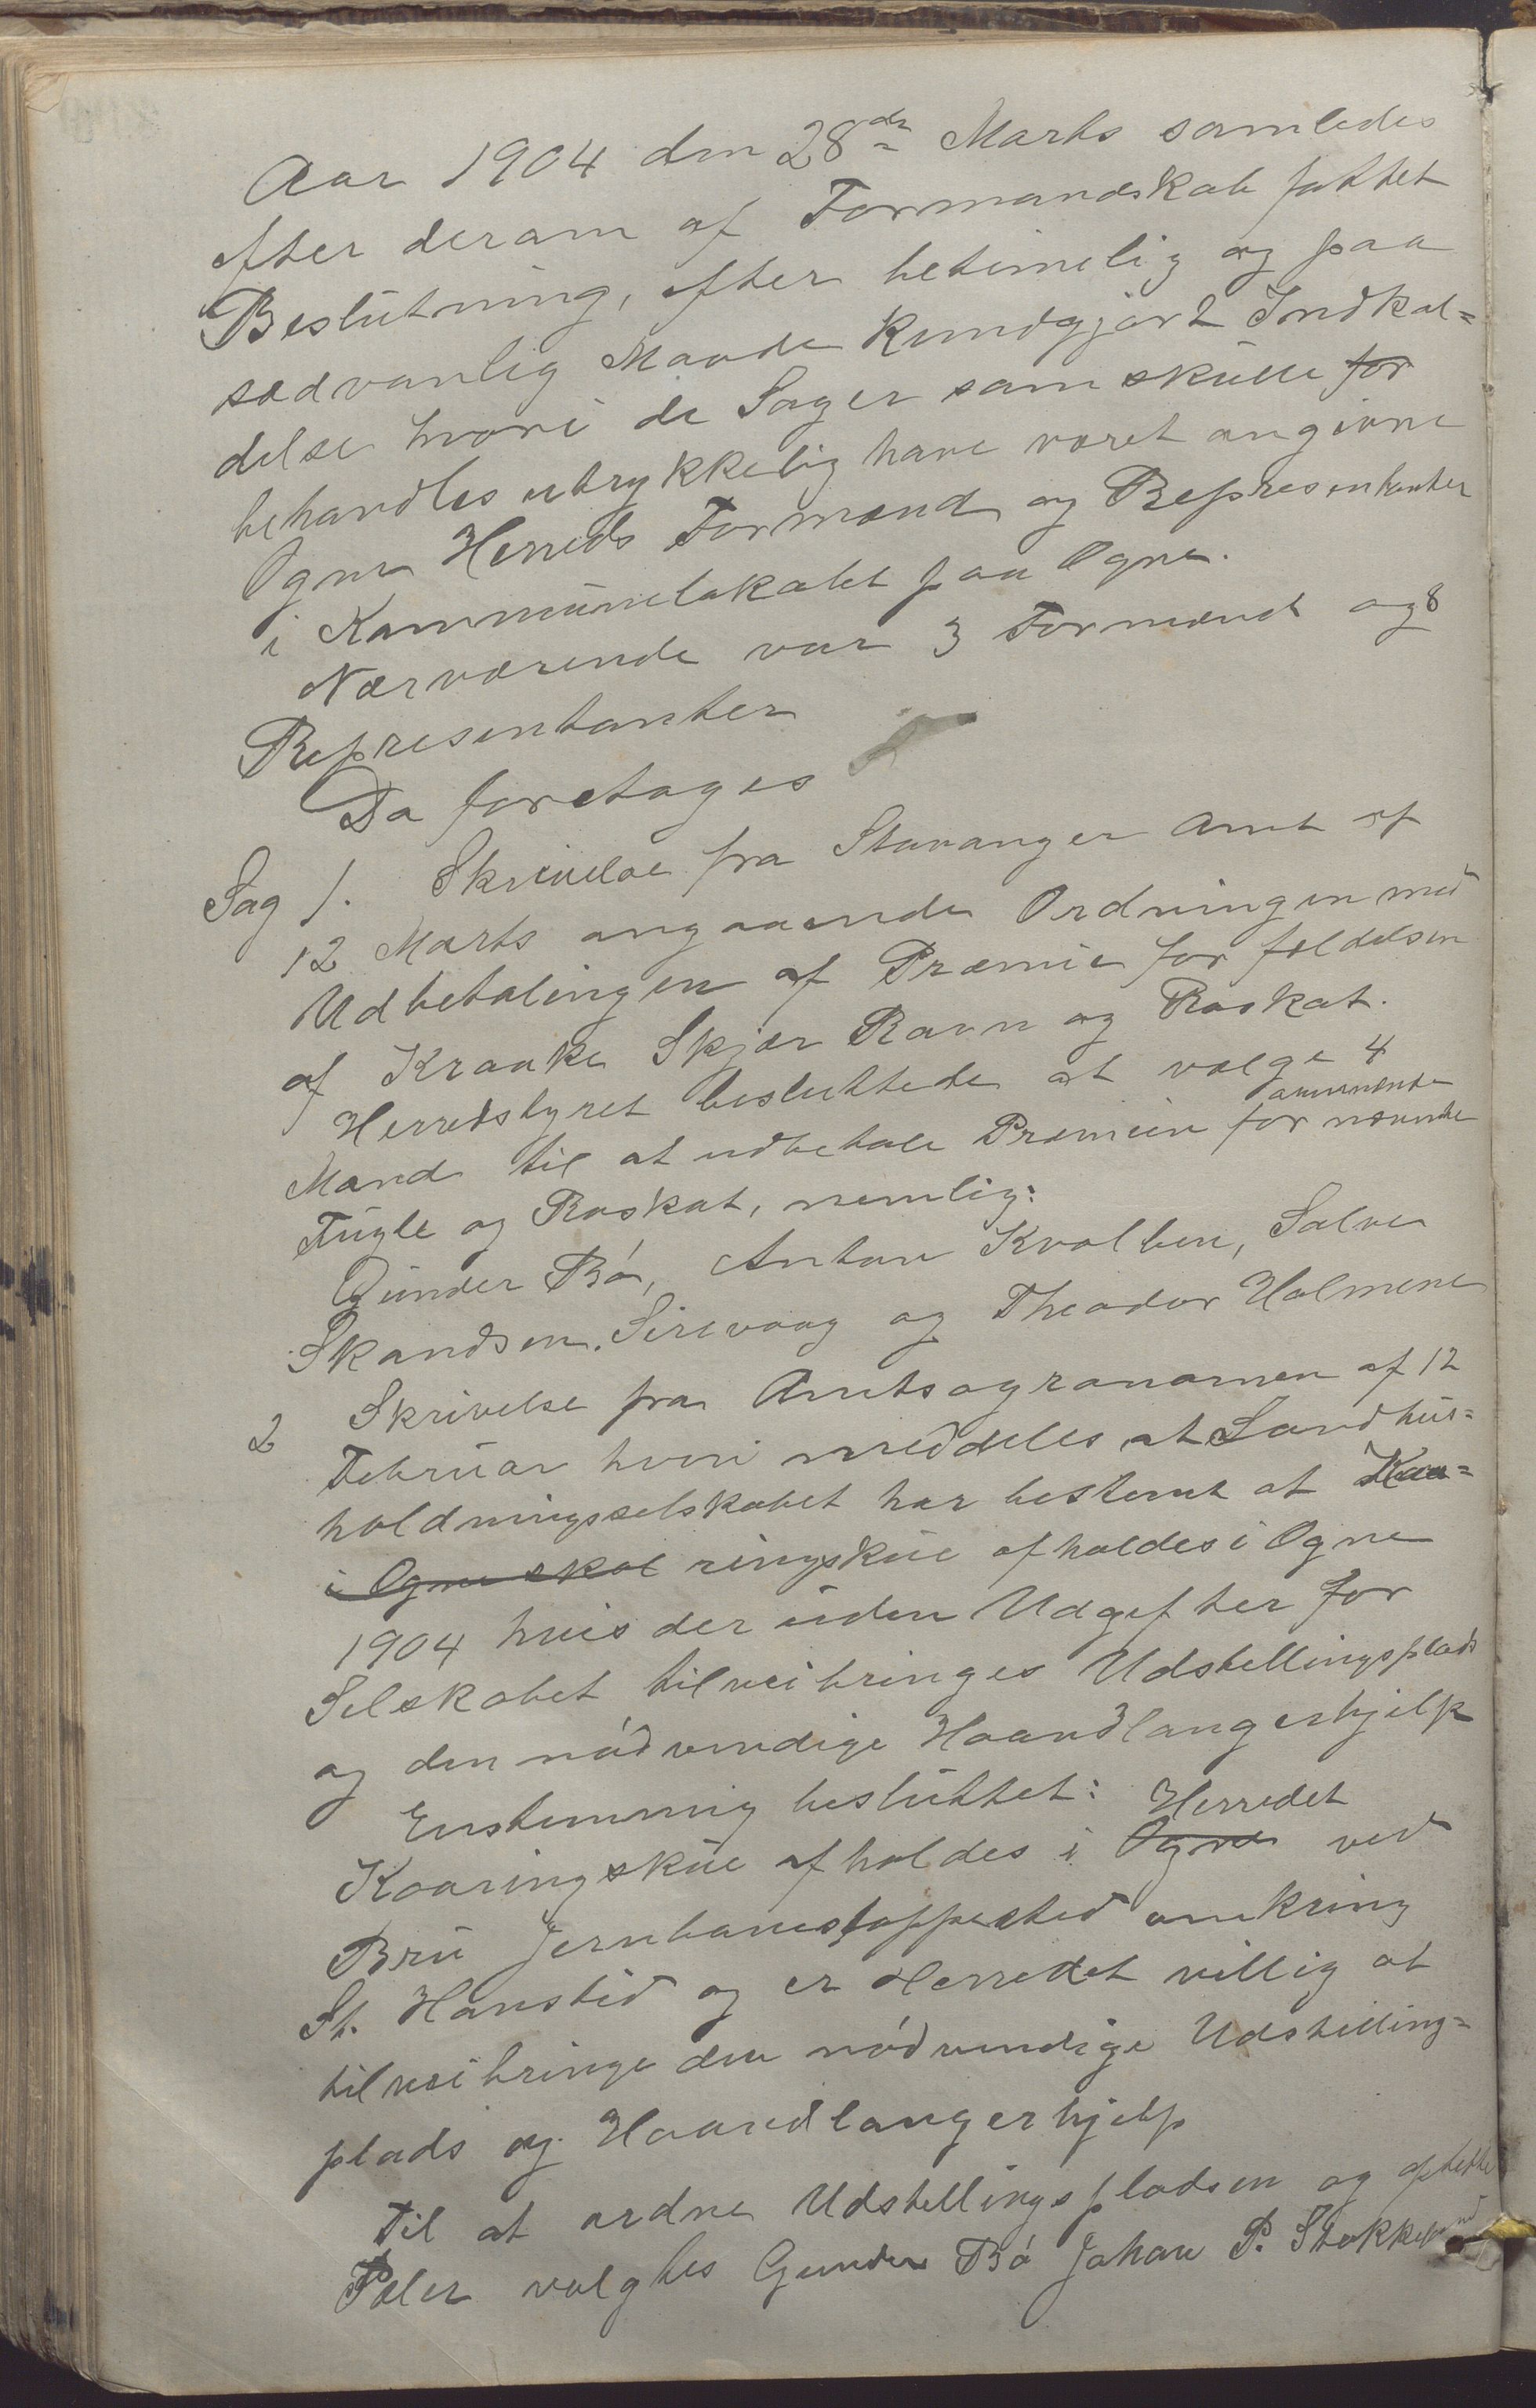 Aar 1904 den 28de Marts samledes
efter derom af Formandskab fattet
Beslutning, efter betimelig og paa
sædvanlig Maade kundgjort Indkal=
delse hvori de Sager som skulle for
behandles utrykkelig have været angivne
Ogne Herreds Formænd og Representanter
i Kommunelokalet paa Ogne.
Nærværende var 3 Formænd og 8
Representanter
Da foretages
Sag 1. Skrivelse fra Stavanger Amt af
12 Marts angaaende Ordningen med
Udbetalingen af Præmie for fældelsen
af Kraake Skjær Ravn og Røskat.
Herredstyret besluttede at vælge 4
Mænd til at udbetale Præmien for nævnte
Fugle og Røskat, nemlig:
Gunder Bø, Anton Kvalben, Salve
Skandsen. Sirevaag og Theodor Holmene
2 Skrivelse fra Amtsagronomen af 12
Februar hvori meddeles at Landhus=
holdningsselskabet har bestemt at Kaa=
i Ogne skal ringskue afholdes i Ogne
1904 hvis der uden Udgifter for
Selskabet tilveibringes Udstellingsplads
og den nødvendige Haandlangerhjelp
Enstemmig besluttet:
Kaaringskue afholdes i Ogne Herredet ved
Bru Jernbanestoppested omkring
St. Hanstid og er Herredet villig at
tilveibringe den nødvendige Udstilling=
plads og Haandlangerhjelp
Til at ordne Udstellingspladsen og opsette
Pæler valgtes Gunder Bø Johan P. Stokkeland